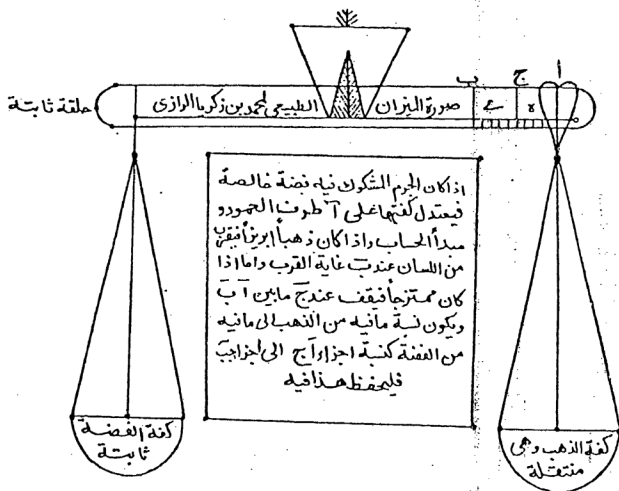 أ
ج
ب
حلقة ثابتة
صورة الميزان الطبيعي لمحمد بن زكريا الرازي
ﻫ
اذا كان الجرم المشكوك فيه فضة خالصة
فيعتدل كفتها على آ طرف العمود و
مبدأ الحساب واذا كان ذهباً إبريزاً فيقرب
من اللسان عند بَ غاية القرب واما اذا
كان ممتزجاً فيقف عند جَ ما بين آ بَ
ويكون نسبة مافيه من الذهب الى مافيه
من الفضة كنسبة اجزاء آج الى اجزا جب
فليحفظ هذا فيه
كفة الفضة
ثابتة
كفة الذهب وهى
منتقلة